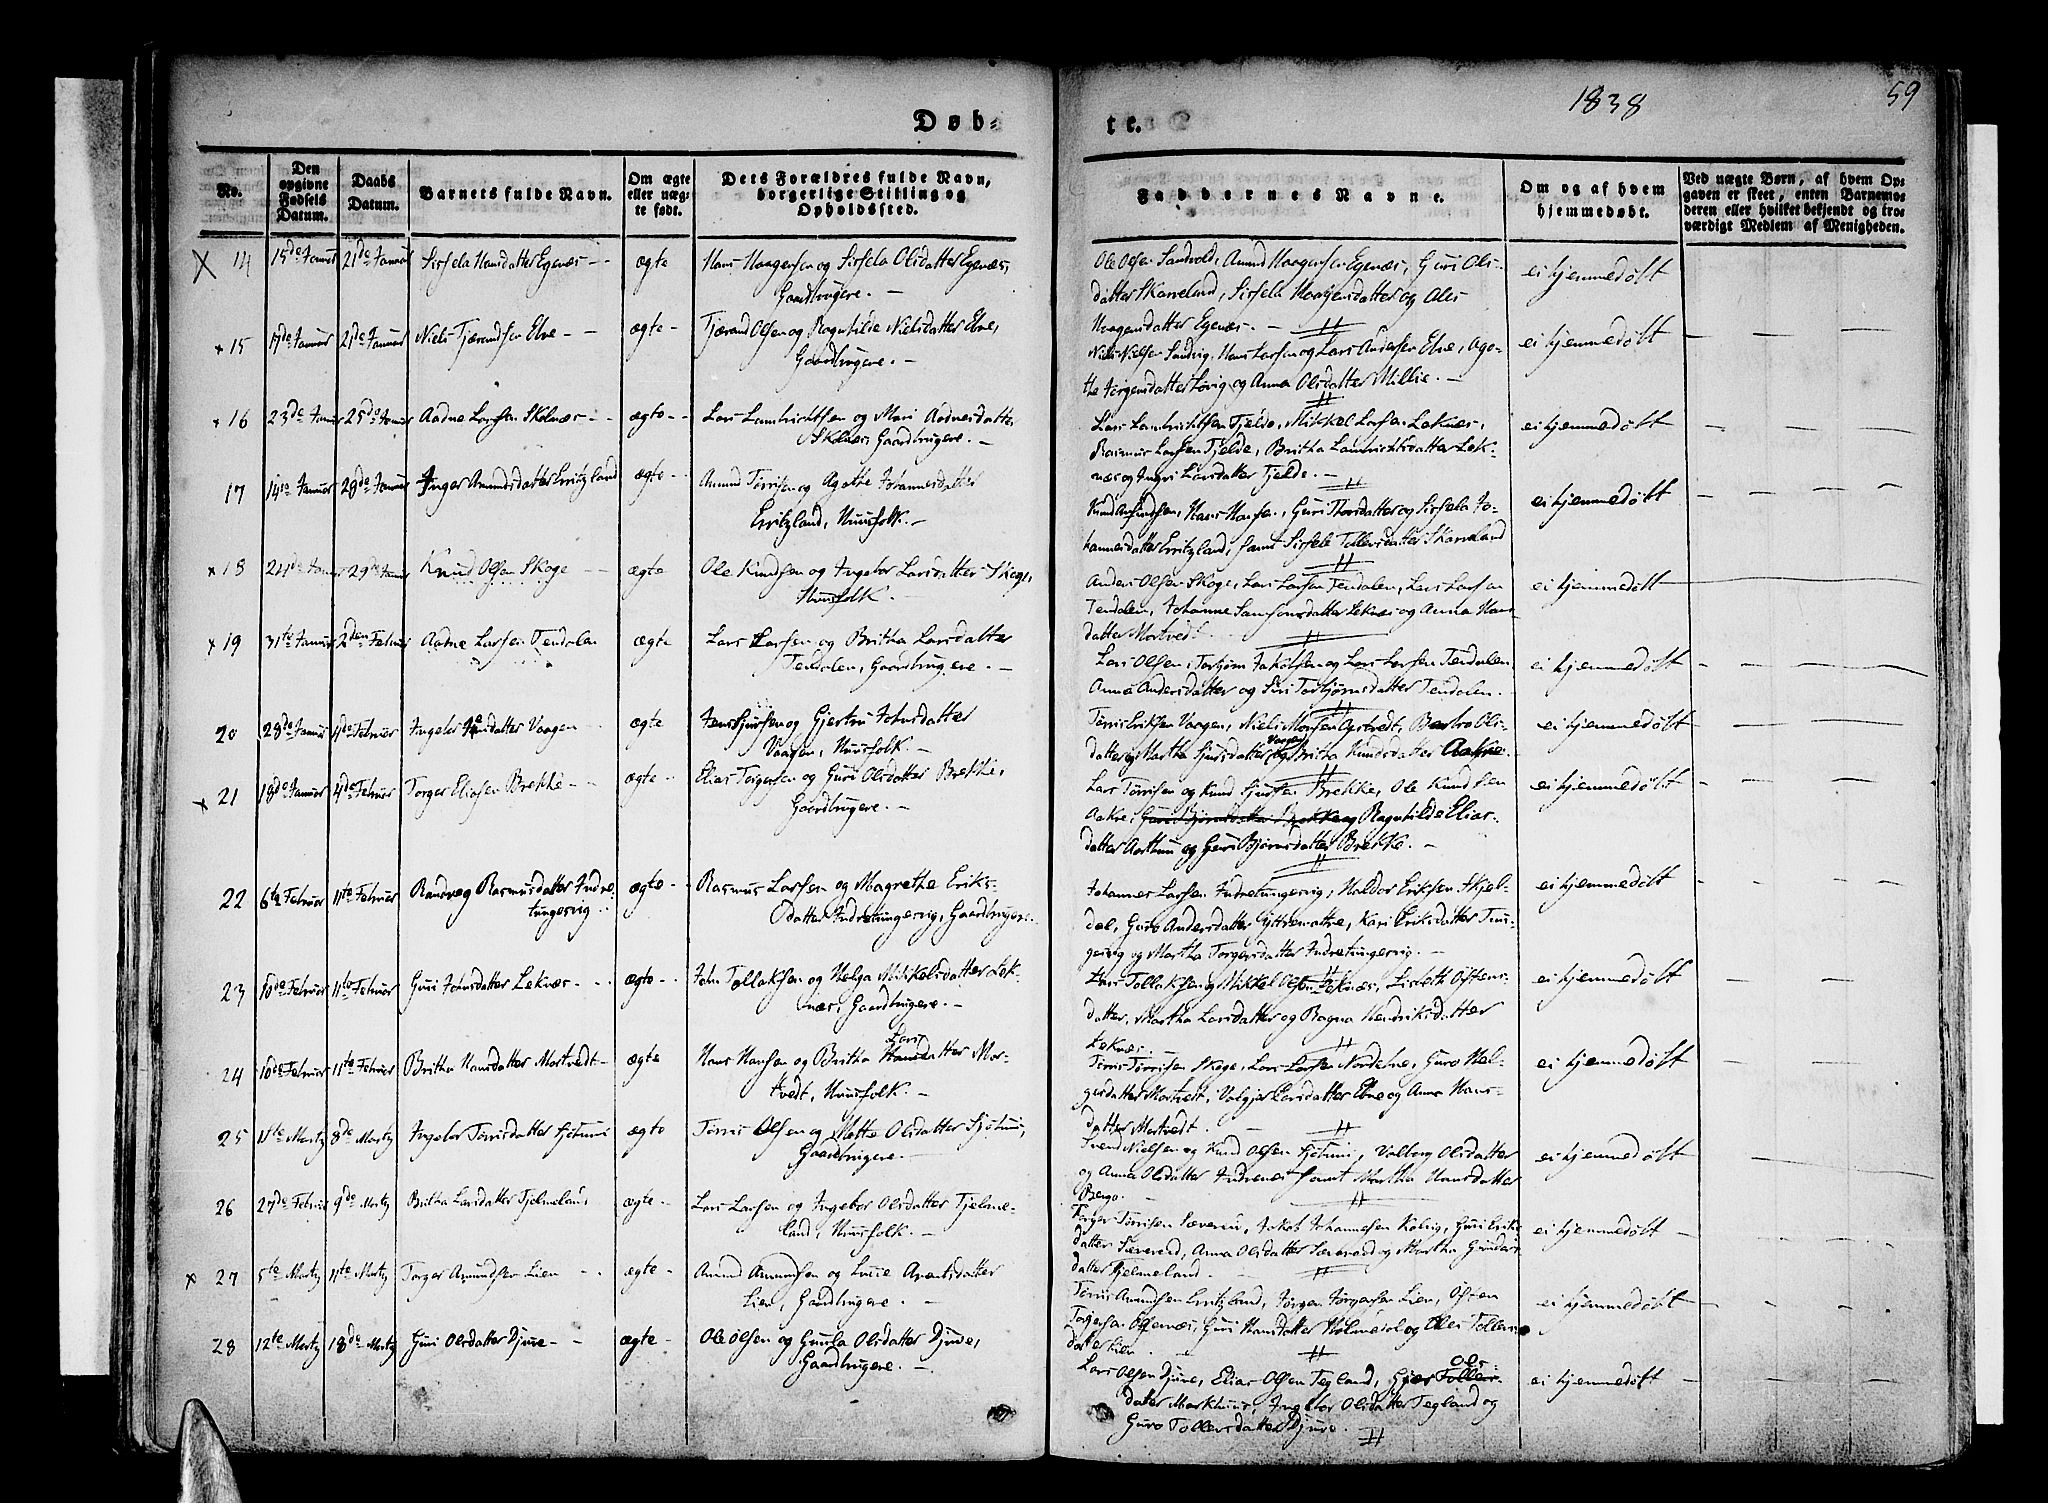 1838
59
Døb-
te.
No.
Den opgivne Fødsels Datum.
Daabs Datum.
Barnets fulde Navn.
Om ægte eller uægte født.
Dets Forældres fulde Navn, borgerlige Stilling og Opholdssted.
Faddernes Navne.
Om og af hvem hjemmedøbt.
Ved uægte Børn, af hvem Opgaven er skeet, enten Barnemoderen eller hvilket bekjendt og troværdigt Medlem af Menigheden.
14 15de Januar 21de Januar Sirsela Hansdatter Egenæs ægte Hans Haagensen og Sirsela Olsdatter Egenæs,
Gaardbrugere.
Ole Olsen Sandvold, Amund Haagensen Egenæs, Guri Ols-
datter Skaneland, Sirsela Haagensdatter og
Haagensdatter Egenæs.
ei hjemmedøbt
15 17de Januar 21de Januar Niels Tjærandsen Elve ægte Tjærand Olsen og Ragnhilde Nielsdatter Elve,
Gaardbrugere.
Niels Nielsen Sandvig, Hans Larsen og Lars Andersen Elve, Aga-
the Jørgensdatter og Anna Olsdatter Millie.
ei hjemmedøbt
16 23de Januar 25de Januar Aadne Larsen Skelnæs ægte Lars Lambrichtsen og Mari Aadnesdatter
Skelnæs, Gaardbrugere.
Lars Lambrichtsen Tjelde, Mikkel Larsen Leknæs,
Rasmus Larsen Tjelde, Britha Lambrichtsdatter Lek-
næs og Ingri Larsdatter Tjelde.
ei hjemmedøbt
17 14de Januar 28de Januar Inger Amundsdatter Erritzland ægte Amund Tørrisen og Agathe Johannesdatter
Erritzland, Huusfolk.
Knud Asmundsen, Hans Hansen, Guri Thorsdatter og Sirsela Jo-
hannesdatter Erritzland, samt Sirsele Tollevsdatter Skaneland
ei hjemmedøbt
18 Januar 29de Januar Knud Olsen Skoge ægte Ole Knudsen og Ingebor Larsdatter Skoge,
Huusfolk.
Anders Olsen Skoge, Lars Larsen Tendalen, Lars Larsen
Tendalen, Johanne Samsonsdatter Leknæs og Anna Hans-
datter Mortvedt.
ei hjemmedøbt
19 31te Januar 2den Februar Aadne Larsen Tendalen ægte Lars Larsen og Britha Larsdatter
Tendalen, Gaardbrugere.
Lars Olsen, Torbjørn Jakobsen og Lars Larsen Tendalen,
Anna Andersdatter og Siri Torbjørnsdatter Tendalen.
ei hjemmedøbt
20 28de Januar 4de Februar Ingebor Jensdatter Vaagen ægte Jens Sjursen og Gjertru Johnsdatter
Vaagen, Huusfolk.
Tørris Eriksen Vaagen, Niels Monsen, Ols-
datter og Martha Sjursdatter Vaagen og Britha Knudsdatter Aakre.
ei hjemmedøbt
21 18de Januar 4de Februar Torger Eliasen Brekke ægte Elias Torgersen og Guri Olsdatter Brekke,
Gaardbrugere.
Lars Tørrisen og Knud Sjursen Brekke, Ole Knudsen
Aakre, Guri Bjørnsdatter Brekke og Ragnhilde Elias-
datter og Guri Bjørnsdatter Brekke.
ei hjemmedøbt
22 6te Februar 11te Februar Randveg Rasmusdatter Indre-
tungesvig ægte Rasmus Larsen og Magrethe Eriks-
datter Indretungesvig, Gaardbrugere.
Johannes Larsen Indretungesvig, Haldor Eriksen Skjel-
dal, Guro Andersdatter Yttremattre, Kari Eriksdatter Tun-
gesvig og Martha Torgersdatter Indretungesvig.
ei hjemmedøbt
23 10de Februar 11te Februar Guri Johnsdatter Leknæs ægte John Tollaksen og Helga Mikkelsdatter Lek-
næs, Gaardbrugere.
Lars Tollaksen og Mikkel Olsen Leknæs, Lisbeth Østens-
datter, Martha Larsdatter og Ragna Hendriksdatter
Leknæs.
ei hjemmedøbt
24 10de Februar 11te Februar Britha Hansdatter Mortvedt ægte Hans Hansen og Britha Hansdatter Lars Mor-
tvedt, Huusfolk.
Tørris Tørrisen Skoge, Lars Larsen Norderne, Guro Hel-
gesdatter Mortvedt, Valgjer Larsdatter Elve og Anna Hans-
datter Mortvedt.
ei hjemmedøbt
25 4te Martz 8de Martz Ingebor Tørrisdatter Sjøtuni ægte Tørris Olsen og Mette Olsdatter Sjøtuni,
Gaardbrugere.
Svend Nielsen og Knud Olsen Sjøtuni, Valborg Olsdatter
og Anna Olsdatter Indrenæs samt Martha Hansdatter
Berge.
ei hjemmedøbt
26 27de Februar 9de Martz Britha Larsdatter Tjelmeland, ægte Lars Larsen og Ingebor Olsdatter Tjelme-
land, Huusfolk.
Torger Tørrisen Sævereid, Jakob Johannesen Kalvig, Guri Eriks-
datter Sævereid, Anna Olsdatter Sævereid og Martha Gunders-
datter Tjelmeland.
ei hjemmedøbt
27 5te Martz 11te Martz Torger Amundsen Lien ægte Amund Amundsen og Lucie
Lien, Gaardbrugere.
Tørris Amundsen Erritzland, Jørgen Jørgensen Lien, Østen
Torgersen, Guri Hansdatter Holmedal og Tollevs-
datter Lien.
ei hjemmedøbt
28 12te Martz 18de Martz Guri Olsdatter Djuve ægte Ole Olsen og Gunla Olsdatter Djuve,
Gaardbrugere.
Lars Olsen Djuve, Elias Olsen Tegland, Tollevs- Ols-
datter Markhuus, Ingebor Olsdatter Tegland og
Guro Tollevsdatter Djuve.
ei hjemmedøbt